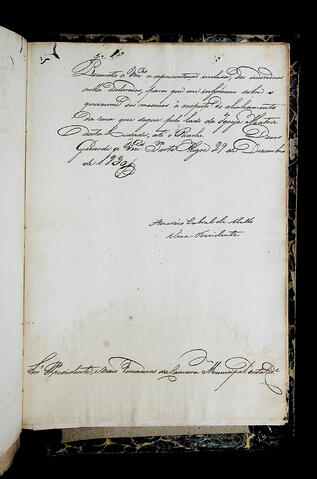 Remetto a Vm.ces a representação inclusa, dos moradores
nella declarados, para que me informem sobre o
que os mesmos à respeito do alinhamento
da rua que segue pelo lado da Igreja Matriz
desta Cidade, até o Riacho. Deos
Guarde a Vm.ces Porto Alegre 22 de Dezembro
de 1839
Americo Cabral de Mello
Vice-Presidente
Snr.es Presidente, e mais Vereadores da Camara Municipal desta Cid.e